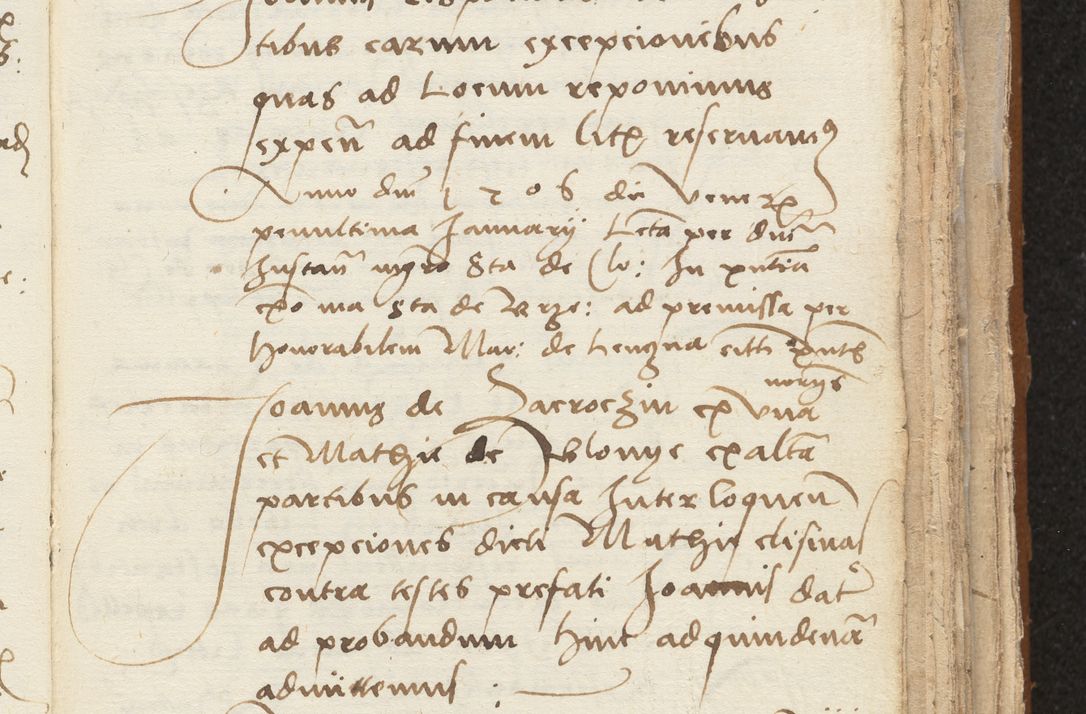 tibus earum excepcionibus
quas ad Locum reponimus
expeñ ad finem litis reservamus
Anno dni 1 5 0 6 die Veneris
penultima Januarij Lcta per dnm
Instañ mgro Sta de Clo: In pntia
Sta de Urze: ad premissa per
honorabilem Mar: de citti pntes
norijs
Joannis de Zacroczin ex una
et Mathie de Blonye ex alta
partibus in causa Interloquen
excepciones dicti Mathie elisivas
contra testes prefati Joannis dat
ad probandum hinc ad quindenam
admittemus :